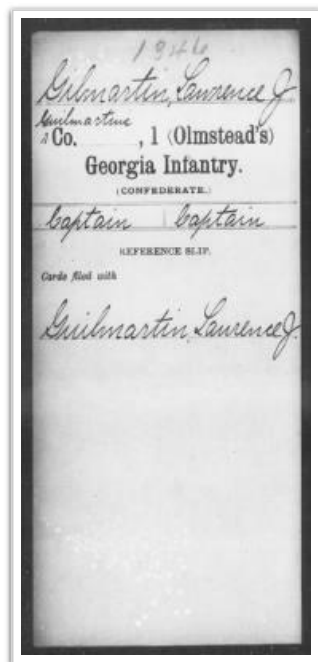 1946
Gilmartin, Lawrence J.
Guilmartine
2 Co. , 1 (Olmstead's)
Georgia Infantry.
(CONFEDERATE.)
Captain Captain
REFERENCE SLIP.
Cards filed with
Guilmartin, Laurence J.